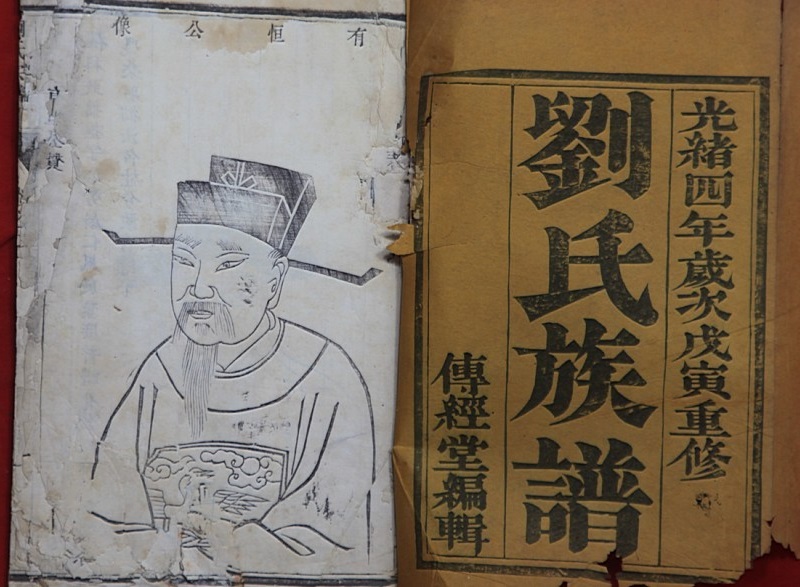 光緒四年歲次戊寅重修
劉氏族譜
傳經堂編輯
有恒公像